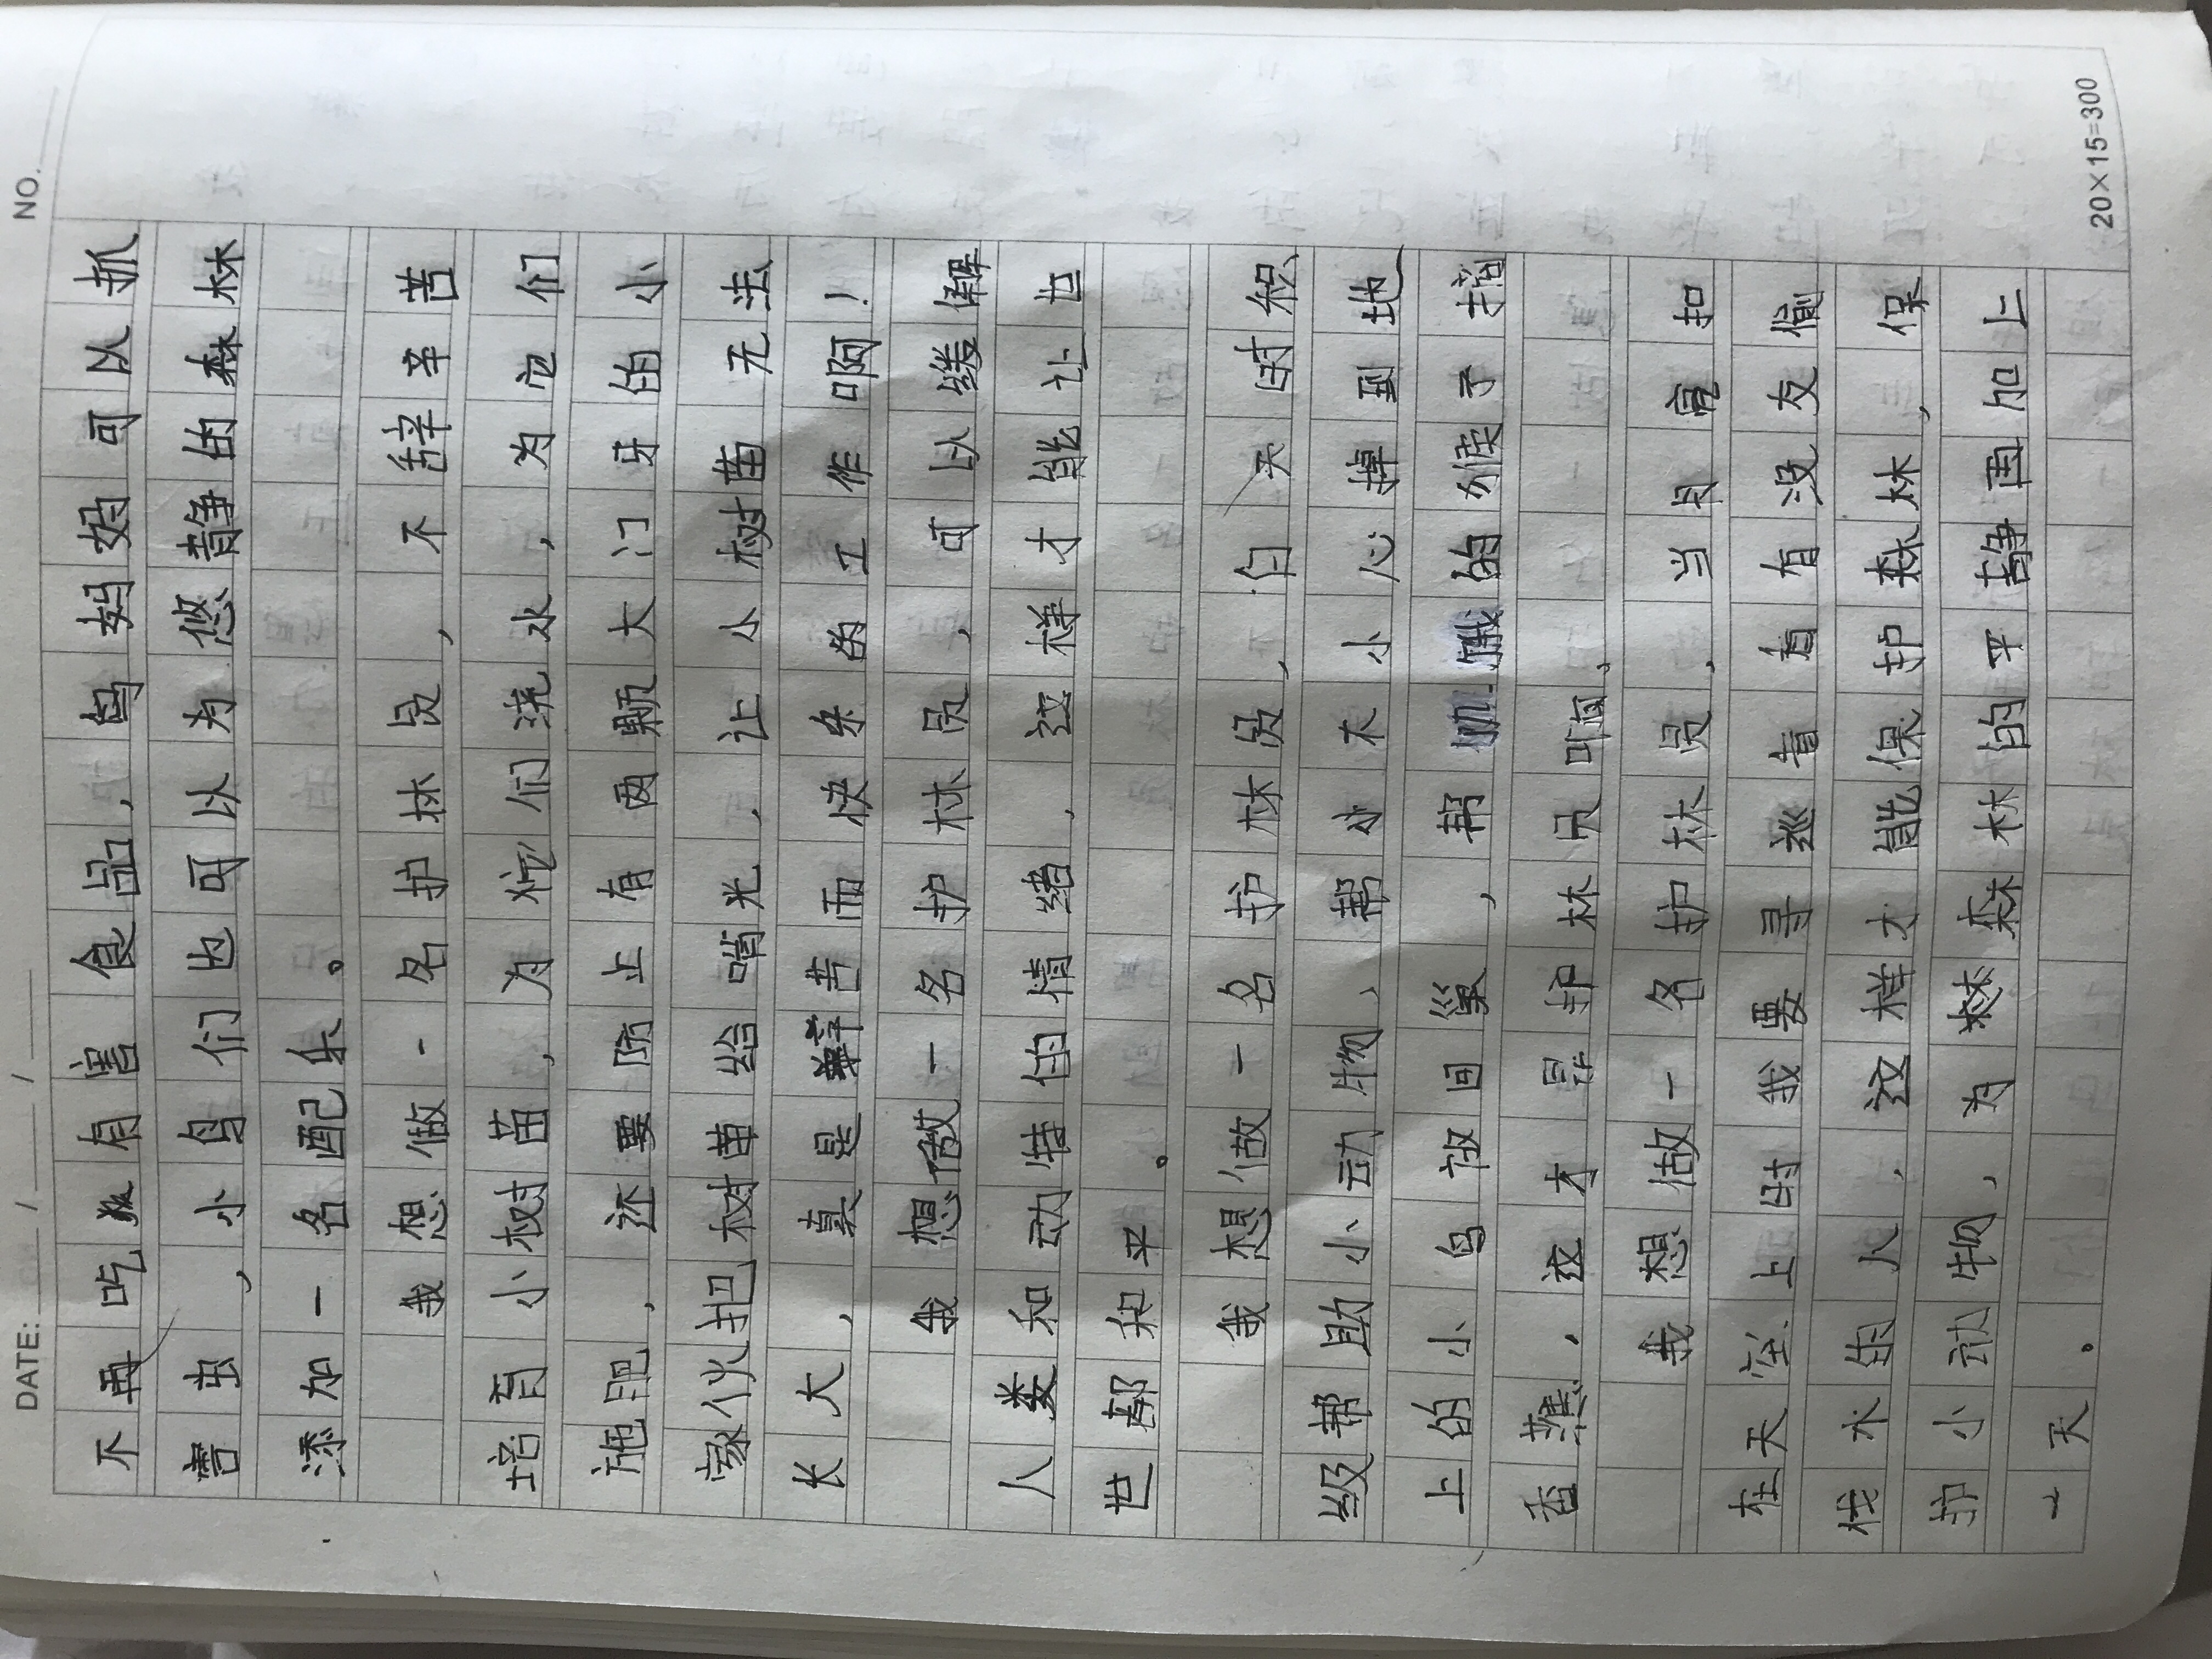 NO.
DATE: / /
不再吃有害食品,鸟妈妈可以抓
害虫,小鸟们也可以为悠静的森林
添加一名配乐。
我想做一名护林员,不辞辛苦
培育小树苗,为它们浇水,为它们
施肥,还要防止有两颗大门牙的小
家伙把树苗给啃光,让小树苗无法
长大,真是辛苦而快乐的工作啊!
我想做一名护林员,可以缓解
人类和动特的情绪,这样才能让世
世都和平。
我想做一名护林员,白天时积
级帮助小动物,帮小不小心掉到地
上的小鸟放回巢,帮的猴子摘
香蕉,这才是护林员啊,
我想做一名护林员,当月亮扣
在天空上时我要寻巡着看有没友偷
伐木的人,这样才能保护森林,保
护小动物,为森林的平静画加上
一天。
20×15=300